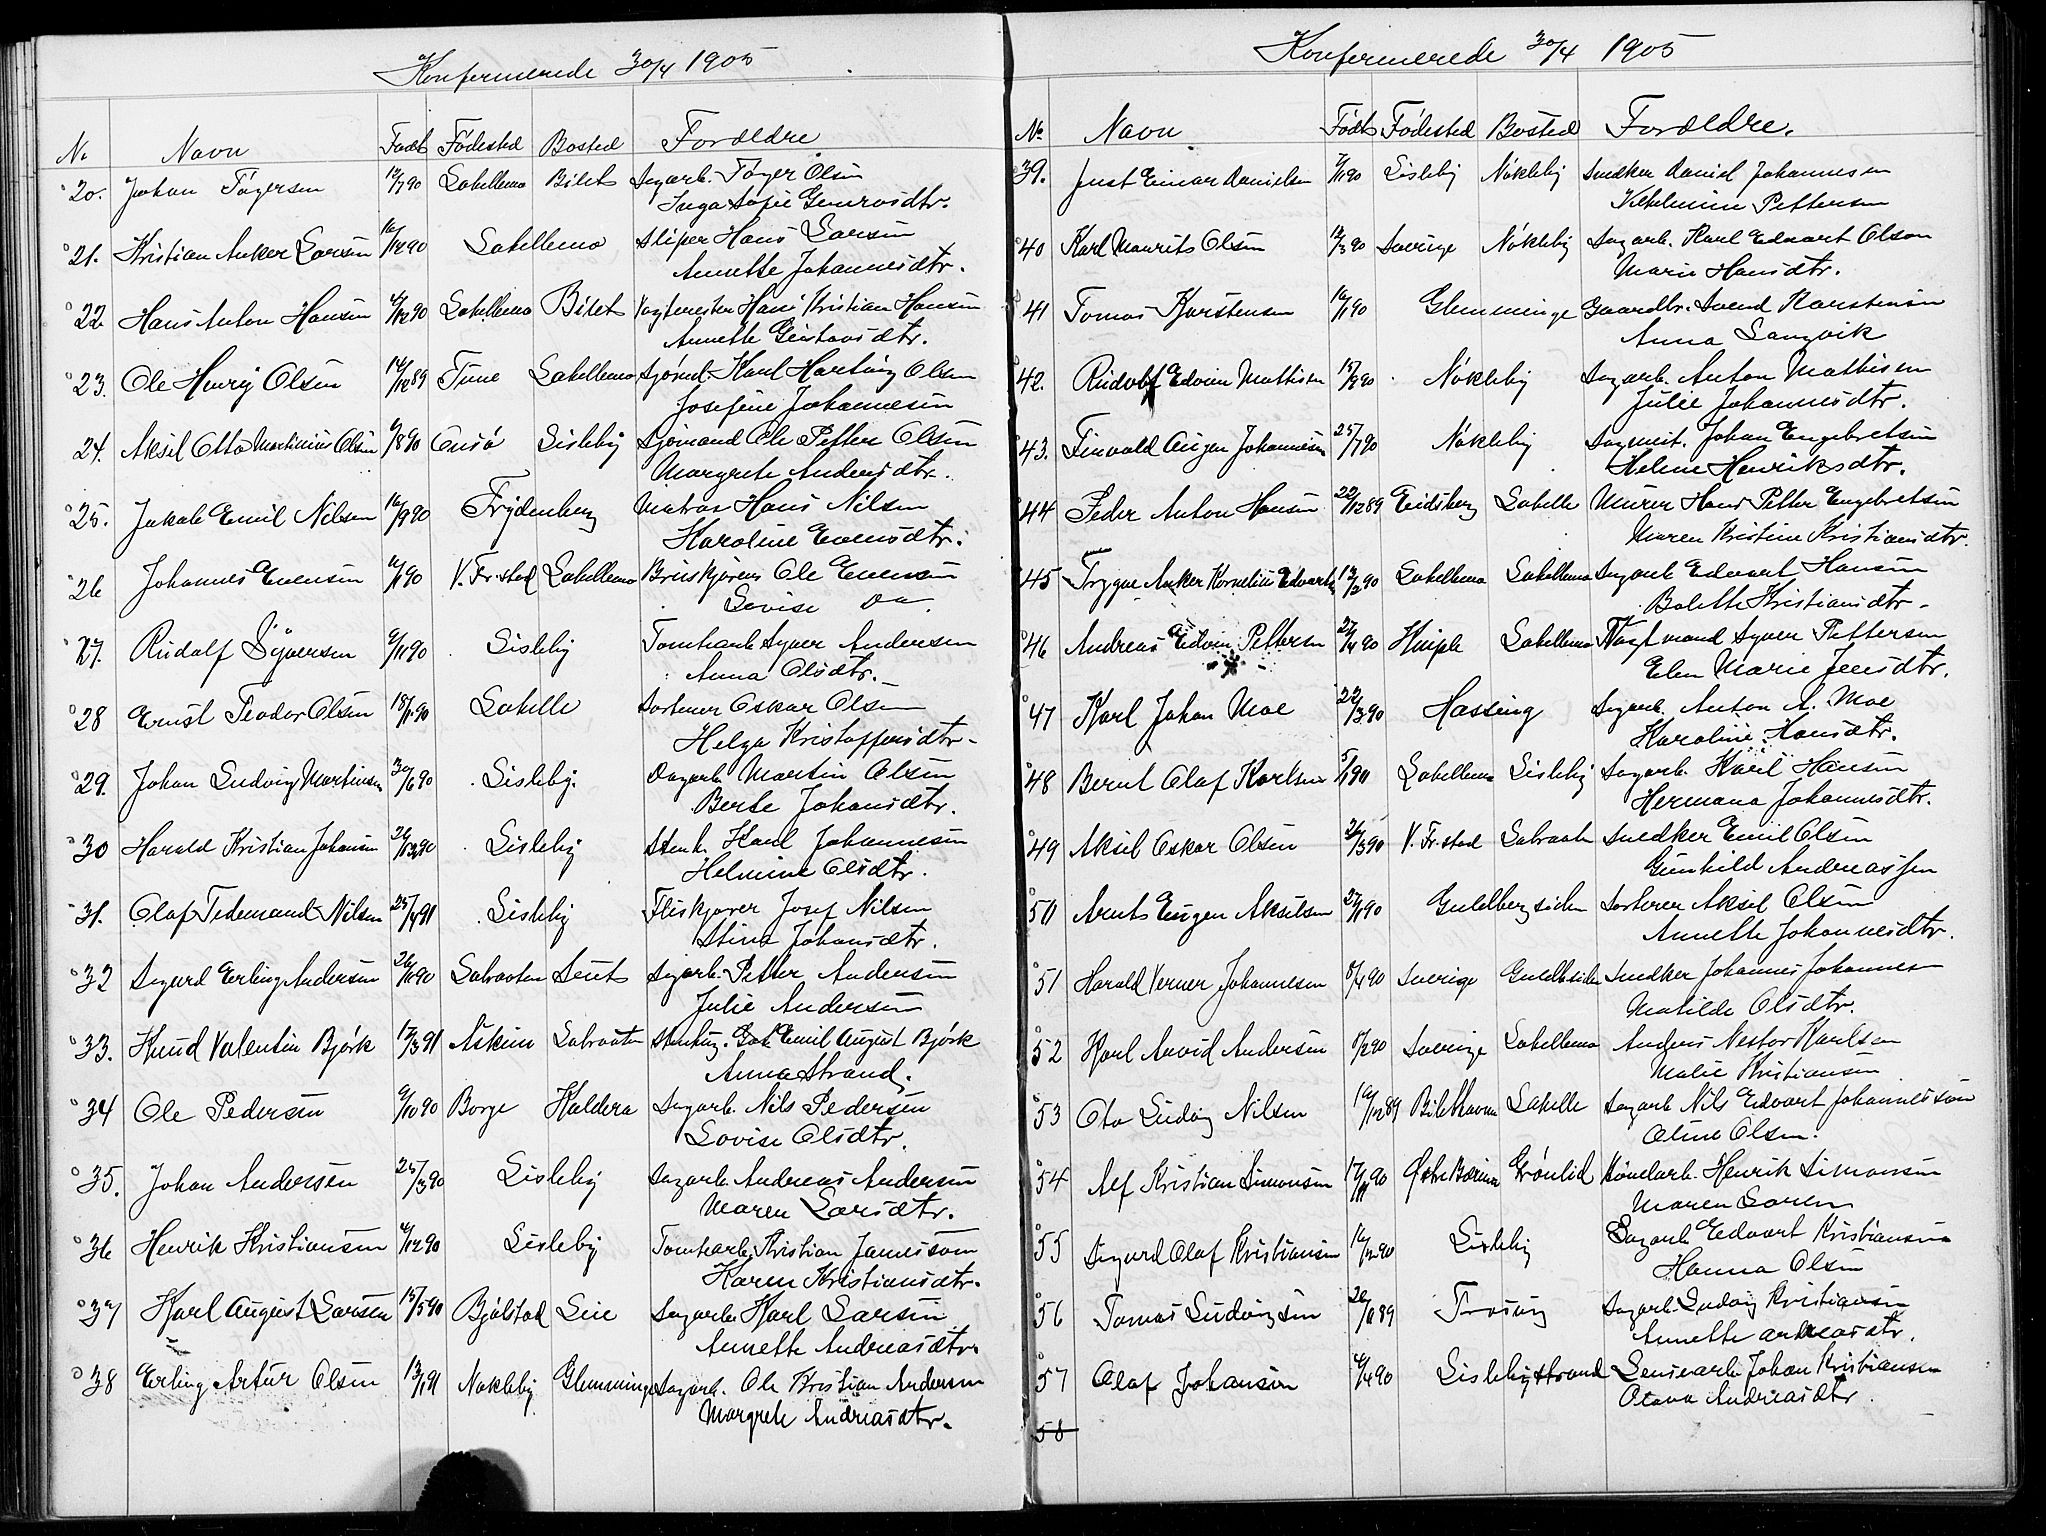 Konfermerede 30/4 1905
N. Navn Født Fødested Bosted Foreldre
20. Johan Tøgersen 12/7 90 Labellemo Bilet Dagarb. Tøger Olsen
Inga Sofie
21. Kristian Anker Larsen 12 90 Labellemo Sliper Hans Larsen
Annette Johannesdtr.
22 Hans Anton Hansen 12 90 Labellemo Bilet Vagtmester Hans Kristian Hansen
Annette Gustavsdtr.
23. Ole Henrij Olsen 14/12 89 Tune Labellemo Sjømd. Karl Hartvig Olsen
Josefine Johannesen
24. Aksel Otto Martinius Olsen 8 90 Onsø Lisleby Sjömand Ole Petter Olsen
Margrete Andersdtr.
25. Jakob Emil Nilsen 9 90 Frydenberg Matros Hans Nilsen
Karoline Evensdtr.
26 Johannes Evensen 90 V. Fr.stad Labellemo Ole Evensen
Lovise Do.
27. Rudolf Syversen 11 90 Lisleby Tomtearb Syver Andersen
Anna Olsdtr.
28 Ernst Teodor Olsen 18/1 90 Labelle Sorterer Oskar Olsen
Helga Kristoffersdtr.
29. Johan Ludvig Martinsen 30/6 90 Lisleby. Dagarb Martin Olsen
Berte Johansdtr.
30 Harald Kristian Johansen 26/12 90 Lisleby Stenh. Karl Johannesen
Helmine Olsdtr.
31. Olaf Tedemand Nilsen 25/4 91 Lisleby Fliskjører Josef Nilsen
Stina Johansdtr.
32 Sigurd Erling Andersen 26/11 90 Labraaten Seut Dagarb. Petter Andersen
Julie Andersen
33. Knud Valentin Bjørk 17/3 91 Askim Labraaten Stenhug. Emil August Bjørk
Anna Strand.
34 Ole Pedersen 9/10 90 Borge Kaldera Dagarb. Nils Pedersen
Lovise Olsdtr.
35. Johan Andersen 25/3 90 Lisleby Dagarb Andreas Andersen
Maren Larsdtr.
36 Henrik Kristiansen 12 90 Lisleby Tomtearb. Kristian Jamesson
Karen Kristiansdtr.
37 Karl August Larsen 15/5 90 Bjølstad Leie Dagarb. Karl Larsen
Annette Andreasdtr.
38 Erling Artur Olsen 13/1 91 Nøkleby Glemminge Dagarb. Ole Kristian Andersen
Margrete Andreasdtr.
Konfermerede 30/4 1905
No Navn Født Fødested Bosted Foreldre.
39. Just Einar Danielsen 7/11 90 Lisleby Nøkleby Snedker Daniel Johannesen
Vilhelmine Pettersen
40 Karl Maurits Olsen 12/3 90 Sverige Nøkleby Dagarb. Karl Edvart Olson
Marie Hansdtr.
41 Tomas Karstensen 90 Glemminge Gaardbr. Svend Karstensen
Anna Langvik
42. Rudolf Edvin Mathisen 15/2 90 Nøkleby Dagarb. Anton Mathisen
Julie Johannesdtr.
43. Finvald Augen Johannesen 25/7 90 Nøkleby Dagmest. Johan Engebretsen
Helene Henriksdtr.
44 Peder Anton Hansen 22/12 89 Eidsberg Labelle Murer Hans Petter Engebretsen
Maren Kristine Kristiansdtr.
45 Trygve Anker Kornelius Edvarts. 13/2 90 Labellemo Labellemo Dagarb Edvart Hansen
Bolette Kristiansdtr.
46 Andreas Edvin Pettersen 27/4 90 Labellemo Vagtmand Syver Pettersen
Elen Marie Jensdtr.
47 Karl Johan Moe 22/3 90 Hassing Dagarb. Anton A. Moe
Karoline Hansdtr.
48 Bernt Olaf Karlsen 5/1 90 Labellemo Lisleby Dagarb. Karl Hansen
Hermana Johannesdtr.
49 Aksel Oskar Olsen 26/3 90 V. Fr.stad Labraaten Snedker Emil Olsen
Gunhild Andreassen
50 Arnts Eugen Akselsen 27/11 90 Guldbergsiden Sorterer Aksel Olsen
Annette Johannesdtr.
51 Harald Verner Johannesen 8/4 90 Sverige Guldb.siden Snedker Johannes Johannesen
Matilde Olsdtr.
52 Karl Arvid Andersen 8/2 90 Sverige Labellemo Anders Nestor Karlsen
Malie Kristiansen
53 Oto Ludvig Nilsen 12 89 Labelle Dagarb Nils Edvart Johannesson
Oline Olsen.
54 Alf Kristian Simonsen 17 90 Grønlid Henrik Simonsen
Maren Larsen
55 Sigurd Olaf Kristiansen 12 90 Lisleby Dagarb Edvart Kristiansen
Hanna Olsen
56 Tomas Ludvigsen 26/11 89 Trosvig Dagarb. Ludvig Kristiansen
Annette Andreasdtr.
57 Olaf Johanson 4 90 Lislebystrand Lensearb Johan Kristiansen
Otava Andreasdtr
58